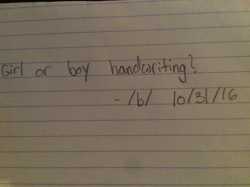 Girl or boy handwriting?
- /b/ 10/31/16